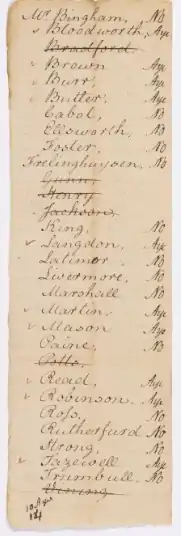 Mr Bingham, No
v Bloodworth, Aye
Bradford.
v Brown Aye
v Burr, Aye
v Butler, Aye
Cabot, No
Ellsworth, No
Foster, No
Frelinghuysen, No
Gunn,
Henry
Jackson,
King, No
v Langdon, Aye
Latimer No
Livermore, No
Marshall No
v Martin, Aye
v Mason Aye
Paine, No
Potts,
v Read, Aye
v Robinson. Aye
Ross, No
Rutherfurd No
Strong, No
v Tazewell Aye
Trumbull, No
Vining
10 Aye